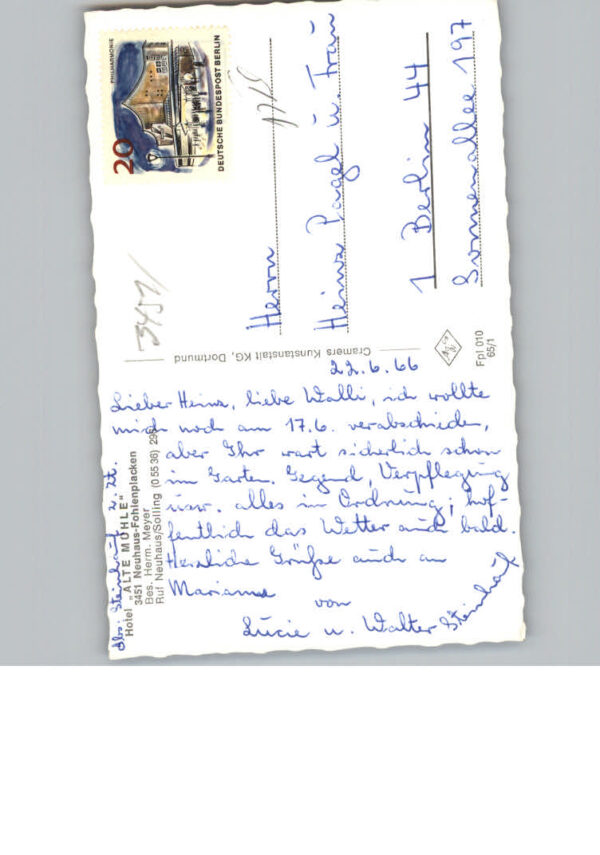 22.6.66
Lieber Heinz, liebe Walli, ich wollte
mich noch am 17.6. verabschieden,
aber Ihr wart sicherlich schon
im Garten. Gegend, Verpflegung
usw. alles in Ordnung; hof-
fentlich das Wetter auch bald.
Herzliche Grüße auch an
Marianne
von
Lucie u. Walter Steinhauf
Abs. Steinhauf z. Zt.
Hotel „ALTE MÜHLE"
3451 Neuhaus-Fohlenplacken
Bes. Herm. Meyer
Ruf Neuhaus/Solling (0 55 36) 295
Cramers Kunstanstalt KG, Dortmund
Fpl 010
65/1
3451/
PHILHARMONIE
20
DEUTSCHE BUNDESPOST BERLIN
Herrn
Heinz Pagel u. Frau
1 Berlin 44
Sonnenallee 197